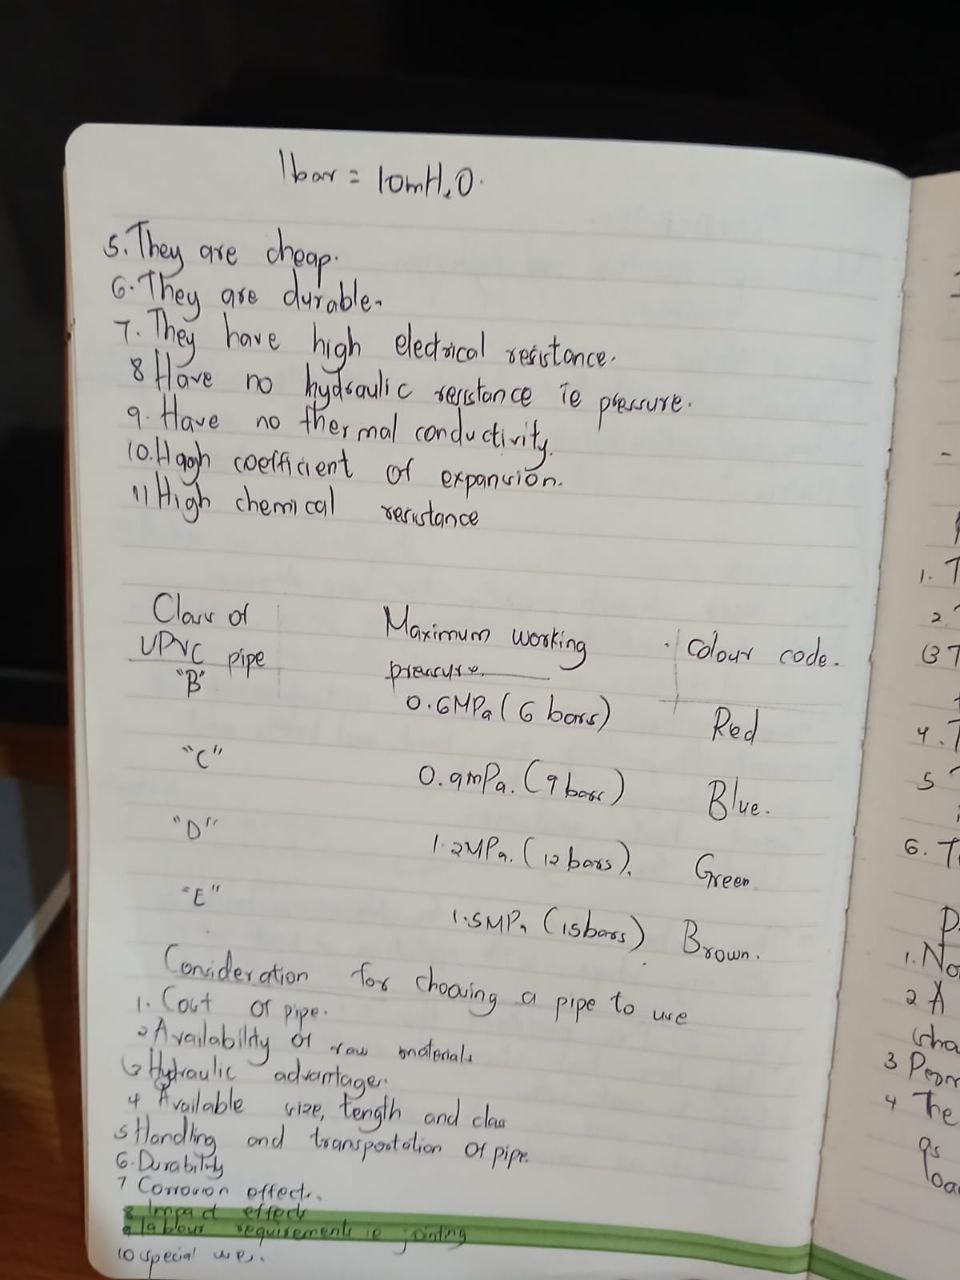 1bar = 10mH₂O.
5. They are cheap.
6. They are durable.
7. They have high electrical resistance.
8 Have no hydraulic resistance ie pressure.
9. Have no thermal conductivity.
10. High coefficient of expansion.
11 High chemical resistance
Class of UPVC pipe Maximum working pressure Colour code.
"B" 0.6MPa (6 bars) Red
"C" 0.9mPa. (9 bars) Blue.
"D" 1.2MPa. (12 bars). Green
"E" 1.5MPa (15bars) Brown.
Consideration for choosing a pipe to use
1. Cost of pipe.
2 Availability of raw materials
3 Hydraulic advantage.
4 Available size, length and class
5 Handling and transportation of pipe.
6. Durability
7 Corrosion effects.
8 Impact effects
9 labour requirements ie jointing
10 special uses.
1. T
2.
3 T
4. T
5
6. T
1. No
2 A
3 Perm
4 The
as
loa